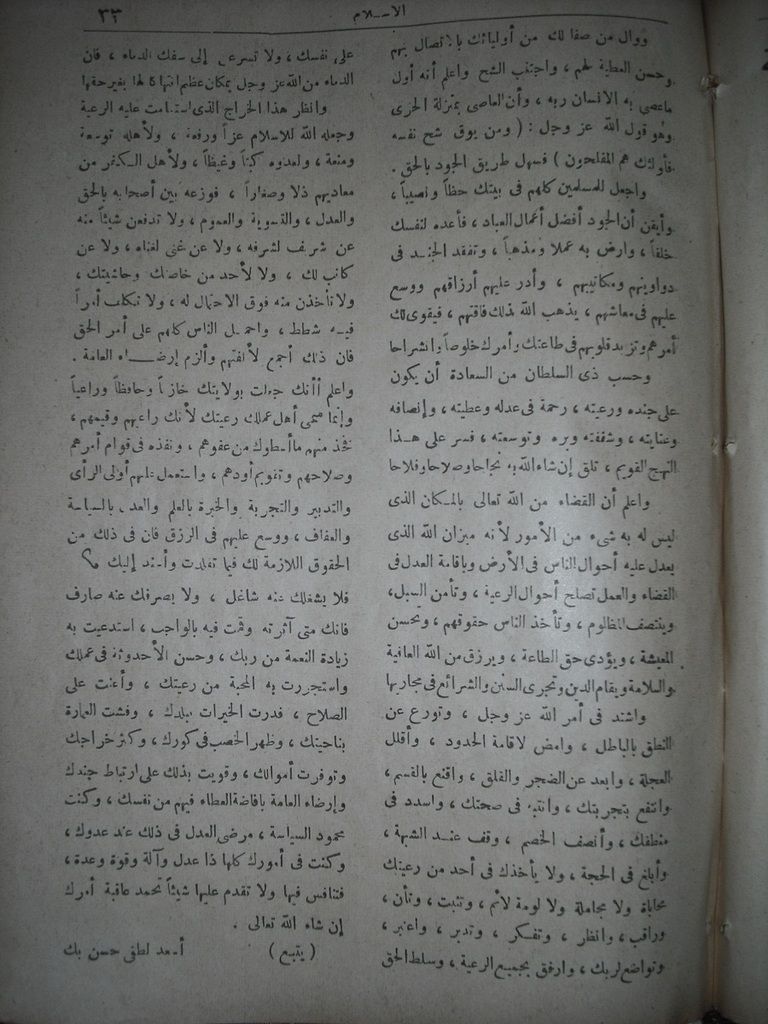 الإسلام
٣٣
ووال من صفا لك من أوليائك بالاتصال بهم
وحسن العطية لهم ، واجتنب الشح واعلم أنه أول
ماعصى به الانسان ربه ، وأن العاصى بمنزلة الخزى
وهو قول الله عز وجل : ( ومن يوق شح نفسه
فأولئك هم المفلحون ) فسهل طريق الجود بالحق .
واجعل للمسلمين كلهم فى بيتك حظاً ونصيباً ،
وأيقن أن الجود أفضل أعمال العباد ، فأعده لنفسك
خلقاً ، وارض به عملا ومذهباً ، وتفقد الجند فى
دواوينهم ومكاتيبهم ، وأدر عليهم أرزاقهم ووسع
عليهم فى معاشهم ، يذهب الله بذلك فاقتهم ، فيقوى لك
أمرهم وتزيد قلوبهم فى طاعتك وأمرك خلوصاً وانشراحا
وحسب ذى السلطان من السعادة أن يكون
على جنده ورعيته ، رحمة فى عدله وعطيته ، وإنصافه
وعنايته ، وشفقته وبره وتوسعته ، فسر على هذا
النهج القويم ، تلق إن شاء الله به نجاحا وصلاحا وفلاحا
واعلم أن القضاء من الله تعالى بالمكان الذى
ليس له به شىء من الأمور لأنه ميزان الله الذى
يعدل عليه أحوال الناس فى الأرض وباقامة العدل فى
القضاء والعمل تصلح أحوال الرعية ، وتأمن السبل ،
وينتصف المظلوم ، وتأخذ الناس حقوقهم ، وتحسن
المعيشة ، ويؤدى حق الطاعة ، ويرزق من الله العافية
والسلامة ويقام الدين وتجرى السنن والشرائع فى مجاريها
واشتد فى أمر الله عز وجل ، وتورع عن
النطق بالباطل ، وامض لاقامة الحدود ، وأقلل
العجلة ، وابعد عن الضجر والقلق ، واقنع بالقسم ،
وانتفع بتجربتك ، وانتبه فى صمتك ، واسدد فى
منطقك ، وأنصف الخصم ، وقف عند الشبهة ،
وأبلغ فى الحجة ، ولا يأخذك فى أحد من رعيتك
محاباة ولا مجاملة ولا لومة لائم ، وتثبت ، وتأن ،
وراقب ، وانظر ، وتفكر ، وتدبر ، واعتبر ،
وتواضع لربك ، وارفق بجميع الرعية ، وسلط الحق
على نفسك ، ولا تسرعن إلى سفك الدماء ، فان
الدماء من الله عز وجل بمكان عظيم انتهاكا لها بغير حقها
وانظر هذا الخراج الذى استقامت عليه الرعية
وجعله الله للاسلام عزاً ورفعة ، ولأهله توسعة
ومنعة ، ولعدوه كبتاً وغيظاً ، ولأهل الكفر من
معاديهم ذلا وصغاراً ، فوزعه بين أصحابه بالحق
والعدل ، والتسوية والعموم ، ولا تدفعن شيئاً منه
عن شريف لشرفه ، ولا عن غنى لغناه ، ولا عن
كاتب لك ، ولا لأحد من خاصتك وحاشيتك ،
ولا تأخذن منه فوق الاحتمال له ، ولا تكلف أمراً
فيه شطط ، واحمل الناس كلهم على أمر الحق
فان ذلك أجمع لألفتهم وألزم لرضاء العامة .
واعلم أنك جعلت بولايتك خازناً وحافظاً وراعياً
وإنما سمى أهل عملك رعيتك لأنك راعيهم وقيمهم ،
فخذ منهم ما أعطوك من عفوهم ، ونفذه فى قوام أمرهم
وصلاحهم وتقويم أودهم ، واستعمل عليهم أولى الرأى
والتدبير والتجربة والخبرة بالعلم والعدل بالسياسة
والعفاف ، ووسع عليهم فى الرزق فان فى ذلك من
الحقوق اللازمة لك فيما تقلدت وأسند إليك ؟
فلا يشغلك عنه شاغل ، ولا يصرفك عنه صارف
فانك متى آثرته وقمت فيه بالواجب ، استدعيت به
زيادة النعمة من ربك ، وحسن الأحدوثة فى عملك
واستجررت به المحبة من رعيتك ، وأعنت على
الصلاح ، فدرت الخيرات ببلدك ، وفشت العمارة
بناحيتك ، وظهر الخصب فى كورك ، وكثر خراجك
وتوفرت أموالك ، وقويت بذلك على ارتباط جندك
وإرضاء العامة بافاضة العطاء فيهم من نفسك ، وكنت
محمود السياسة ، مرضى العدل فى ذلك عند عدوك ،
وكنت فى أمورك كلها ذا عدل وآلة وقوة وعدة ،
فتنافس فيها ولا تقدم عليها شيئاً تحمد عاقبة أمرك
إن شاء الله تعالى .
( يتبع ) أسعد لطفى حسن بك